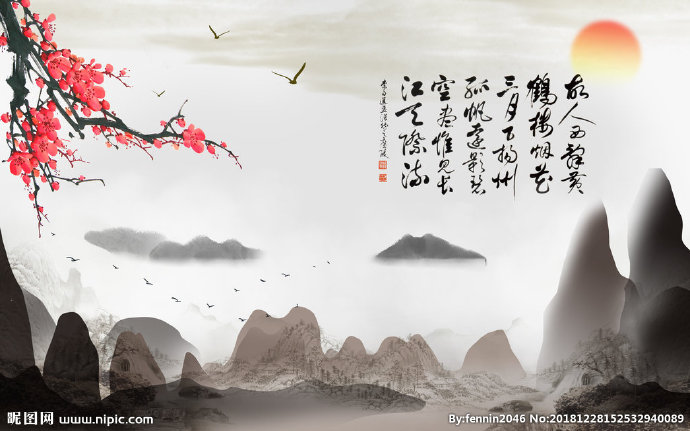 故人西辭黃
鶴樓烟花
三月下揚州
孤帆遠影碧
空盡惟見長
江天際流
李白送孟浩然之廣陵
昵图网 www.nipic.com
By:fennin2046 No:20181228152532940089